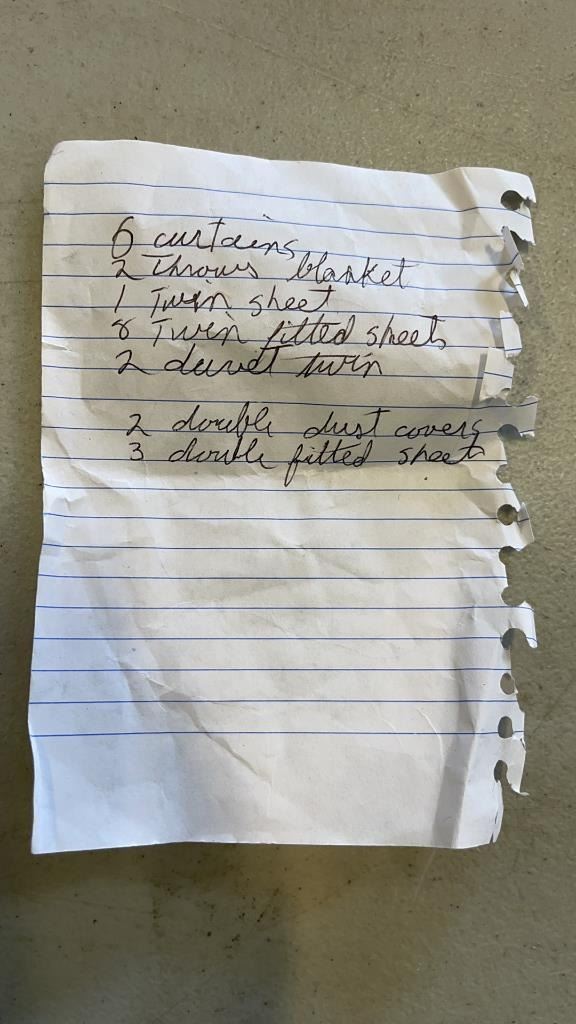 6 curtains
2 Throws blanket
1 Twin sheet
8 Twin fitted sheets
2 duvet twin
2 double dust covers
3 double fitted sheets